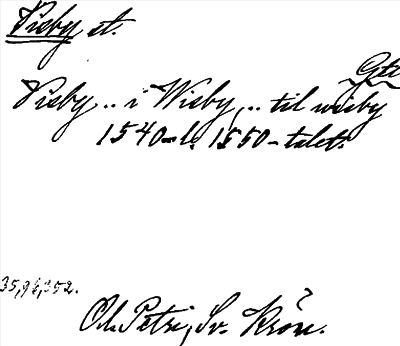 Visby st.
Gtl
Visby .. i Wisby, .. til wisby
1540- l. 1550-talet.
35, 94, 352.
Ol. Petri, Sv. Krön.